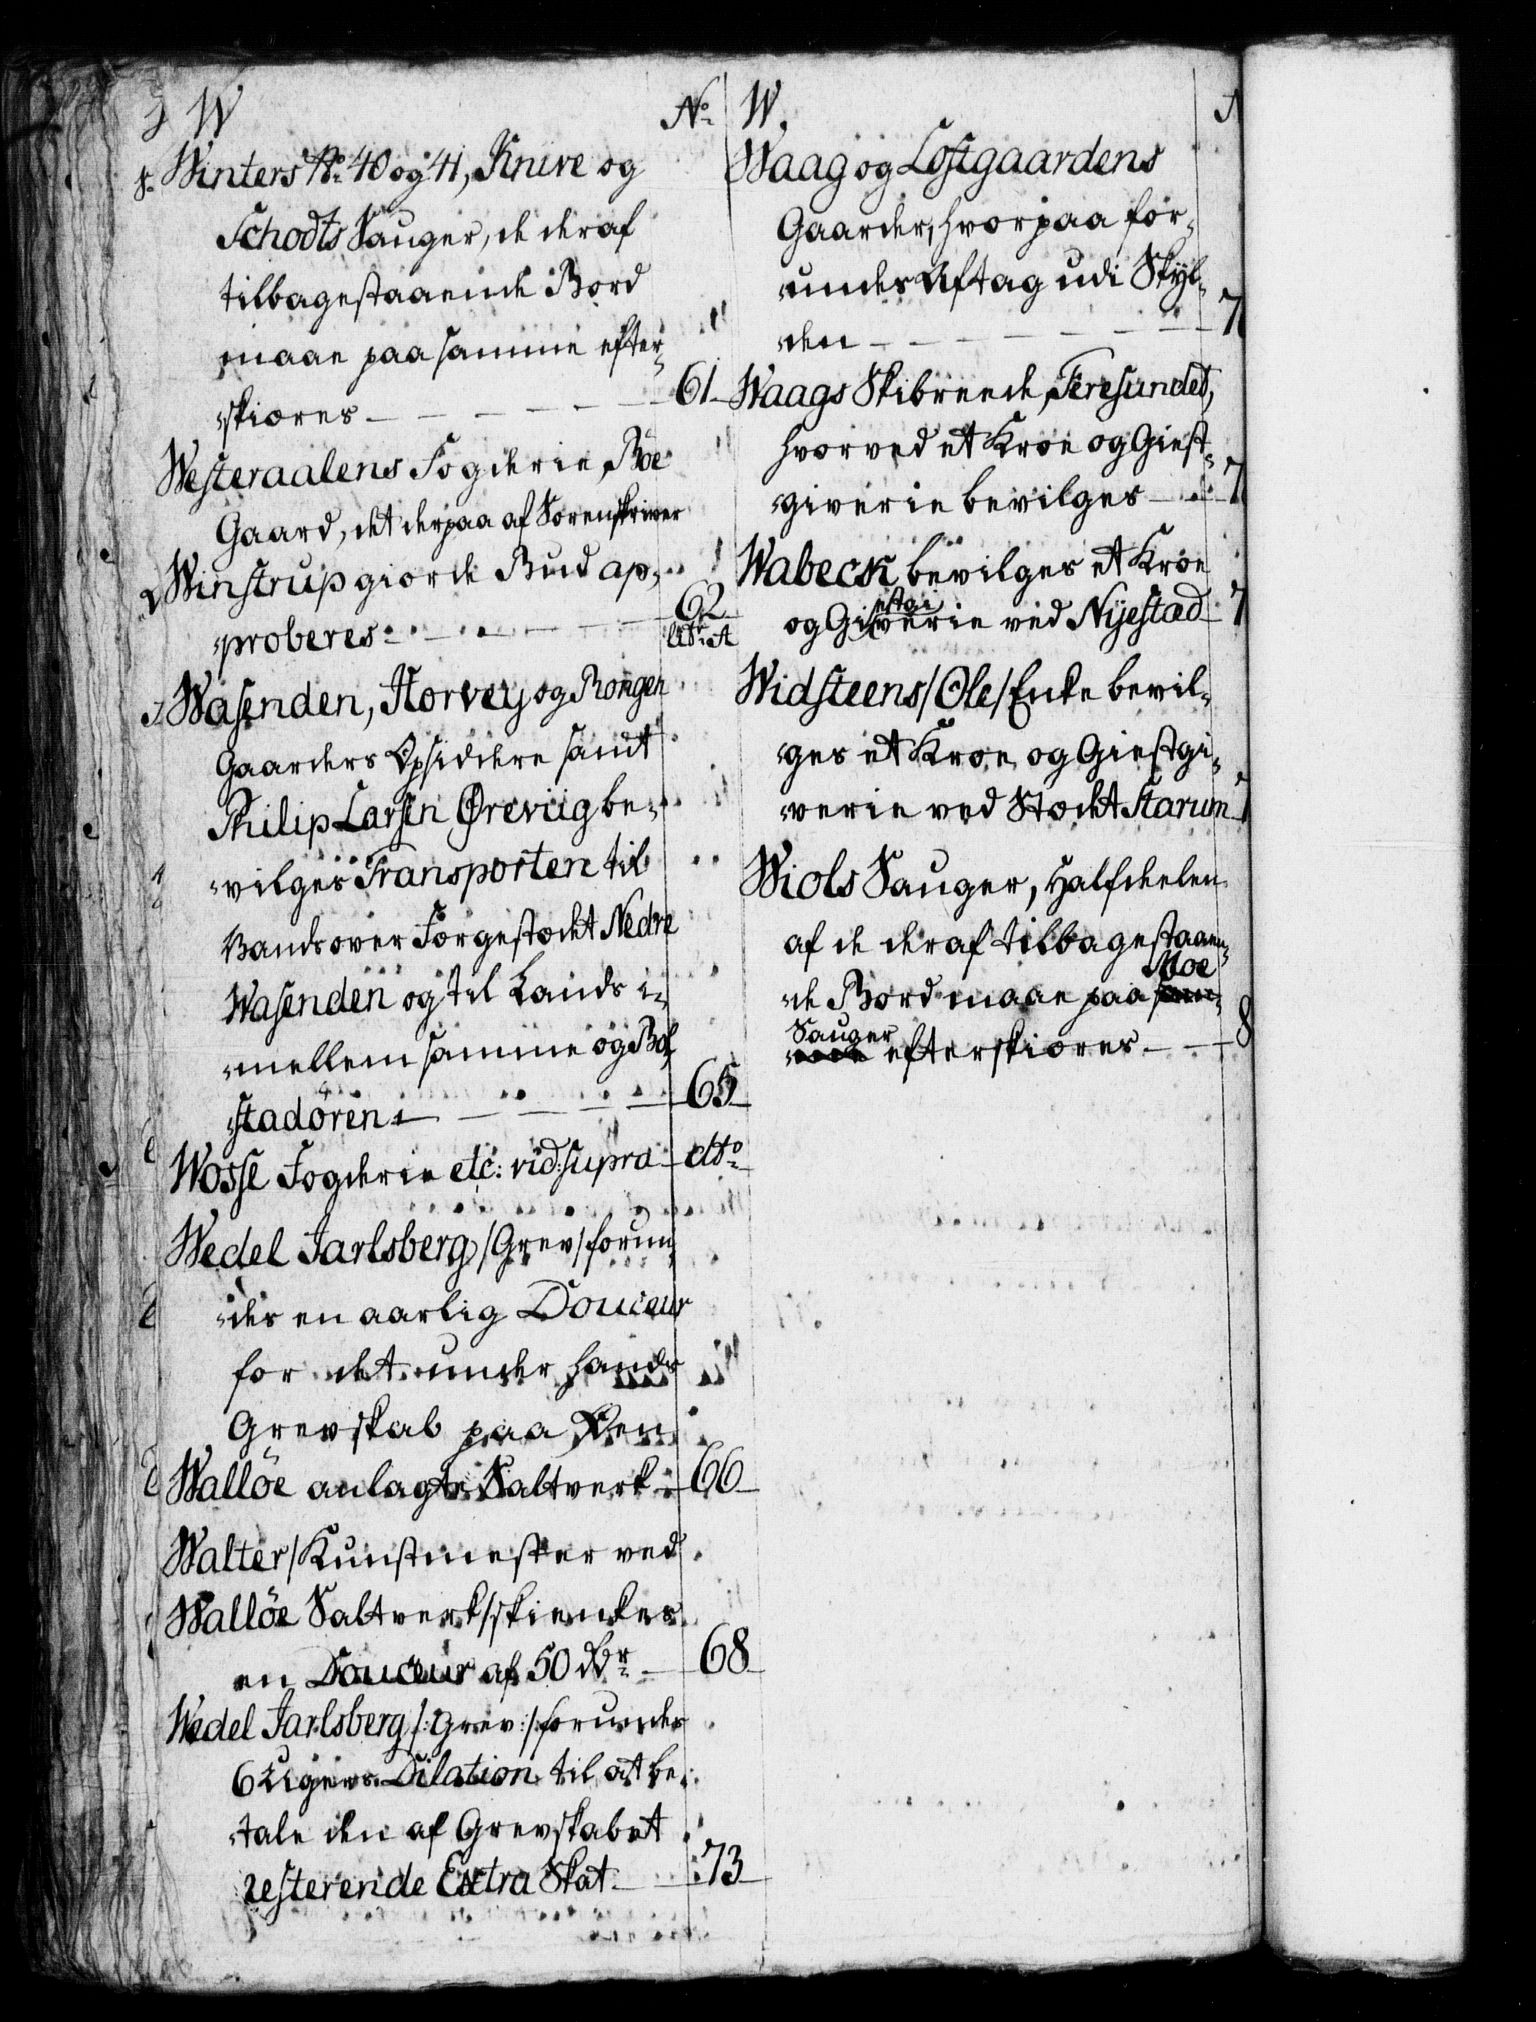 W
No
Winters No 40 og 41, Knive og
Schodts Sauger, de deraf
tilbagestaaende Bord
maae paa samme efter¬
skiæres
61
Westeraalens Fogderie, Böe
Gaard, det derpaa af Sorenskriver
Winstrup giorde Bud ap¬
proberes
62
litr. A
Wasenden, Horvey og Rongen
Gaarders Opsiddere samt
Philip Larsen Öreviig be¬
vilges Transporten til
Vands over Forgestædet Nedre
Wasenden og til Lands i¬
mellem samme og Bol¬
stadören
65
Wosse Fogderie etc: vid: supra
dto
Wedel Jarlsberg /Grev/ forun¬
des en aarlig Douceur
for det under hands
Grevskab paa Øen
Wallöe anlagte Saltverk
66
Walter /Kunstmester ved
Wallöe Saltverk/ skienkes
en Douceur af 50 rdr
68
Wedel Jarlsberg /:Grev:/ forundes
6 Ugers Dilation til at be¬
tale den af Grevskabet
resterende Extra Skat
73
W.
N
Waag og Lostgaardens
Gaarder, hvorpaa for¬
undes Aftag udi Skyl¬
den
7
Waags Skibreede, Feresundet,
hvorved et Kroe og Giest¬
giverie bevilges
7
Wabeck bevilges et Kroe
og Giestgiverie ved Nyestæd
7
Widsteens /Ole/ Enke bevil¬
ges et Kroe og Giestgi¬
verie ved Stædet Starum
7
Wiols Sauger, Halfdeelen
af de deraf tilbagestaaen¬
de Bord maae paa Moe
Sauger efterskiæres
8